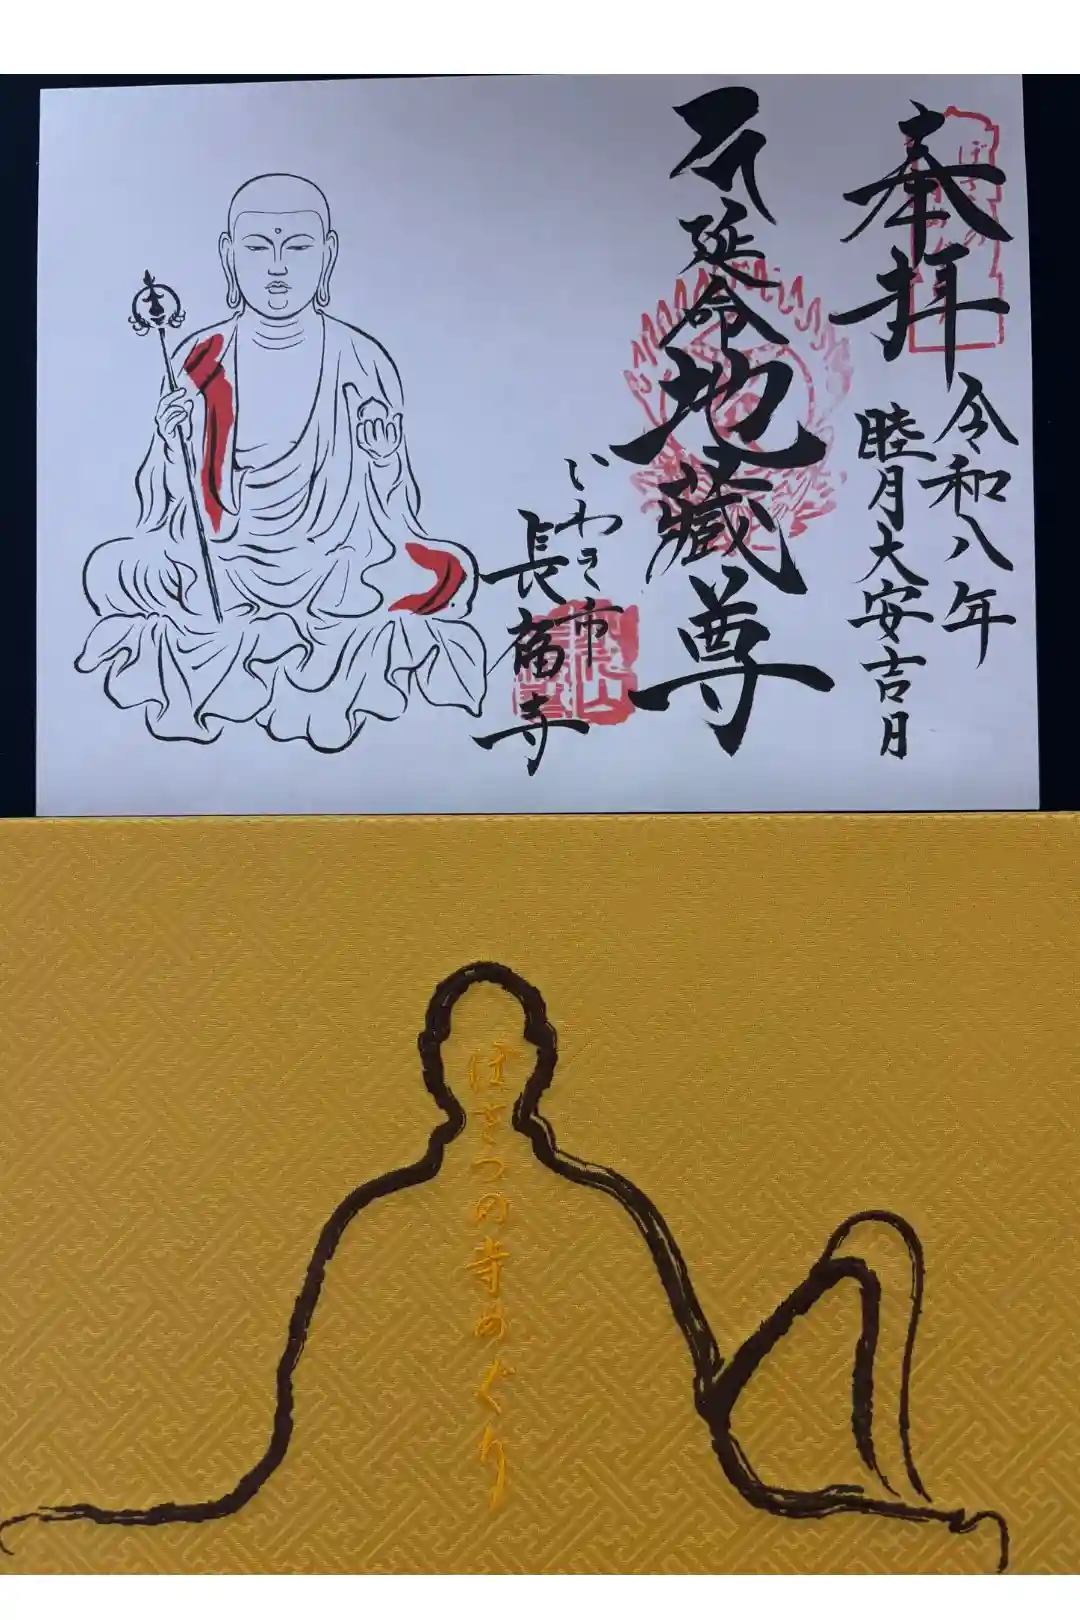 奉拝
令和八年
睦月大安吉月
延命地蔵尊
いわき市
長福寺
ぼさつの寺めぐり